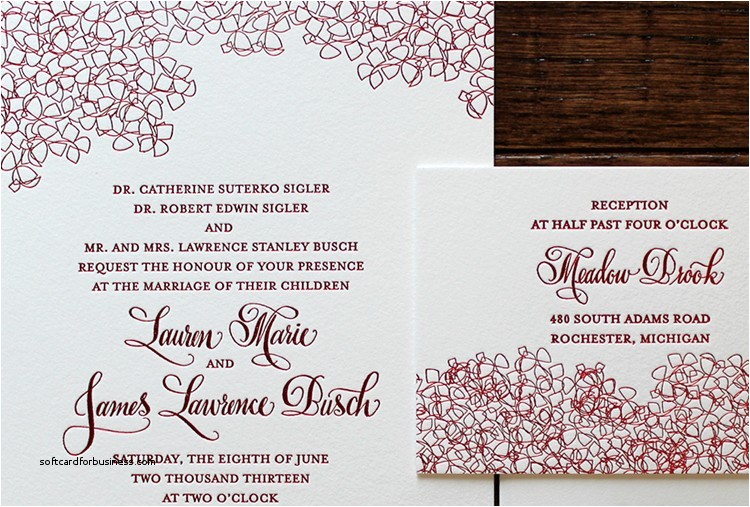 DR. CATHERINE SUTERKO SIGLER
DR. ROBERT EDWIN SIGLER
AND
MR. AND MRS. LAWRENCE STANLEY BUSCH
REQUEST THE HONOUR OF YOUR PRESENCE
AT THE MARRIAGE OF THEIR CHILDREN
Lauren Marie
AND
James Lawrence Busch
SATURDAY, THE EIGHTH OF JUNE
TWO THOUSAND THIRTEEN
AT TWO O'CLOCK
softcardforbusiness.com
RECEPTION
AT HALF PAST FOUR O'CLOCK
Meadow Brook
480 SOUTH ADAMS ROAD
ROCHESTER, MICHIGAN